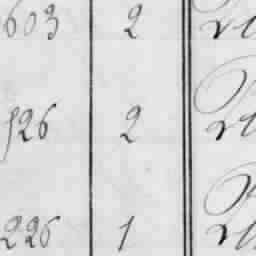 603 2
526 2
226 1